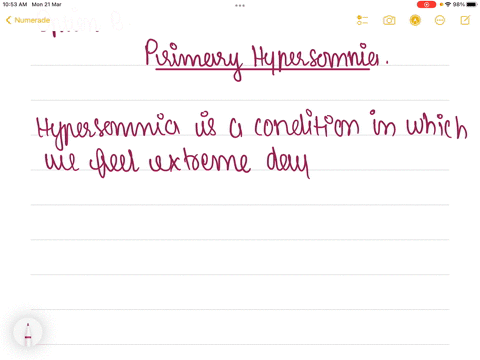 10:53 AM Mon 21 Mar
98%
Numerade
Primary Hypersomnia.
Hypersomnia is a condition in which
we feel extreme day